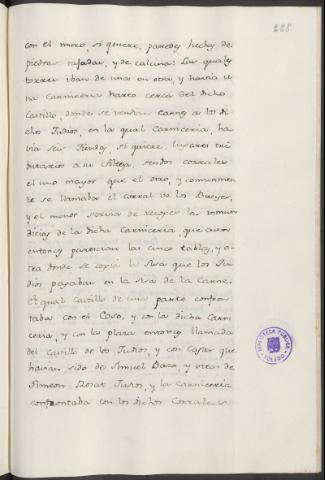 288
con el muro, si quiere, paredes hechas de
piedras rafadas, y de calcina: Las quales
torres iban de una en otra, y havia u
na Carniceria harto cerca del dicho
Castillo, donde se vendian Carnes a los di
chos Judios, en la qual Carniceria, ha
via seis Tiendas, si quiere, lugares tri
butarios a su Alteza, sendos corrales
el uno mayor que el otro, y comunmen
te se llamaba el corral de los Bueyes,
y el menor servia de recoger las inmun
dicias de la dicha Carniceria, que aun
entonces parescian las cinco tablas, y o
tra donde se cogia la Sisa que los Ju
dios pagaban en la Sisa de la Carne.
El qual Castillo de una parte confron
taba con el Coso, y con la dicha Carni
ceria, y con la plaza entonces llamada
del Castillo de los Judios, y con Casas que
havian sido de Simuel Baço, y otras de
Simeon Rosat Judios, y la Carniceria
confrontaba con los dichos Corrales
BIBLIOTECA PUBLICA
TOLEDO